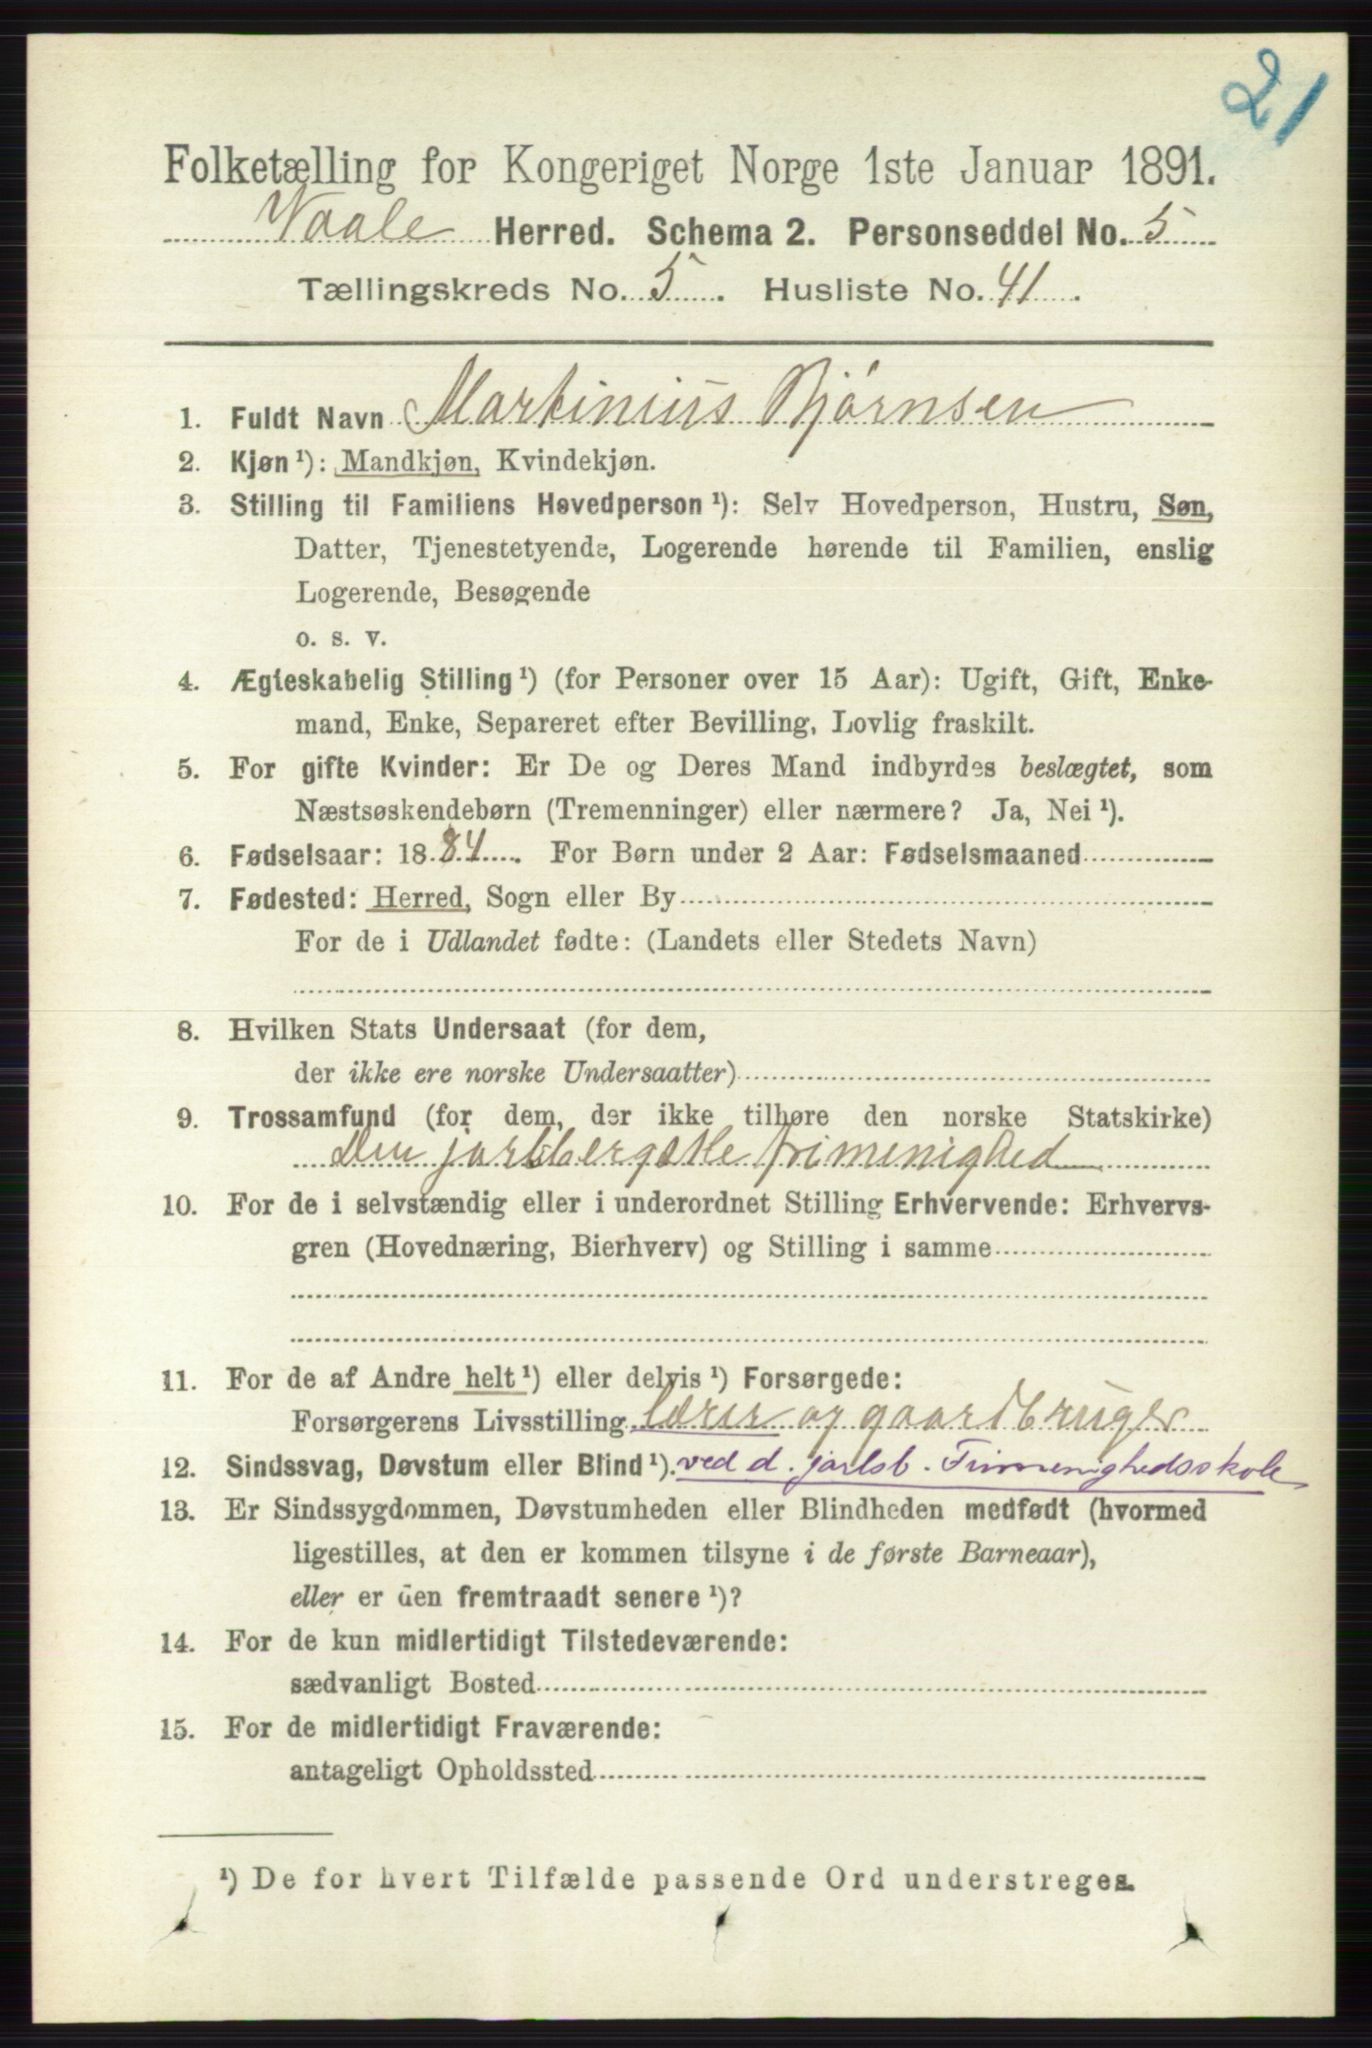 21
Folketælling for Kongeriget Norge 1ste Januar 1891.
Vaale Herred. Schema 2. Personseddel No. 5
Tællingskreds No. 5. Husliste No. 41.
1. Fuldt Navn Martinius Bjørnsen
2. Kjøn¹): Mandkjøn, Kvindekjøn.
3. Stilling til Familiens Hovedperson¹): Selv Hovedperson, Hustru, Søn,
Datter, Tjenestetyende, Logerende hørende til Familien, enslig
Logerende, Besøgende
o. s. v.
4. Ægteskabelig Stilling¹) (for Personer over 15 Aar): Ugift, Gift, Enke-
mand, Enke, Separeret efter Bevilling, Lovlig fraskilt.
5. For gifte Kvinder: Er De og Deres Mand indbyrdes beslægtet, som
Næstsøskendebørn (Tremenninger) eller nærmere? Ja, Nei¹).
6. Fødselsaar: 1884. For Børn under 2 Aar: Fødselsmaaned
7. Fødested: Herred, Sogn eller By
For de i Udlandet fødte: (Landets eller Stedets Navn)
8. Hvilken Stats Undersaat (for dem,
der ikke ere norske Undersaatter)
9. Trossamfund (for dem, der ikke tilhøre den norske Statskirke)
Den jarlsbergske frimenighed
10. For de i selvstændig eller i underordnet Stilling Erhvervende: Erhvervs-
gren (Hovednæring, Bierhverv) og Stilling i samme
11. For de af Andre helt¹) eller delvis¹) Forsørgede:
Forsørgerens Livsstilling Lærer og gaardbruger
12. Sindssvag, Døvstum eller Blind¹). ved d. jarlsb. Frimenighedsskole
13. Er Sindssygdommen, Døvstumheden eller Blindheden medfødt (hvormed
ligestilles, at den er kommen tilsyne i de første Barneaar),
eller er den fremtraadt senere¹)?
14. For de kun midlertidigt Tilstedeværende:
sædvanligt Bosted
15. For de midlertidigt Fraværende:
antageligt Opholdssted
¹) De for hvert Tilfælde passende Ord understreges.